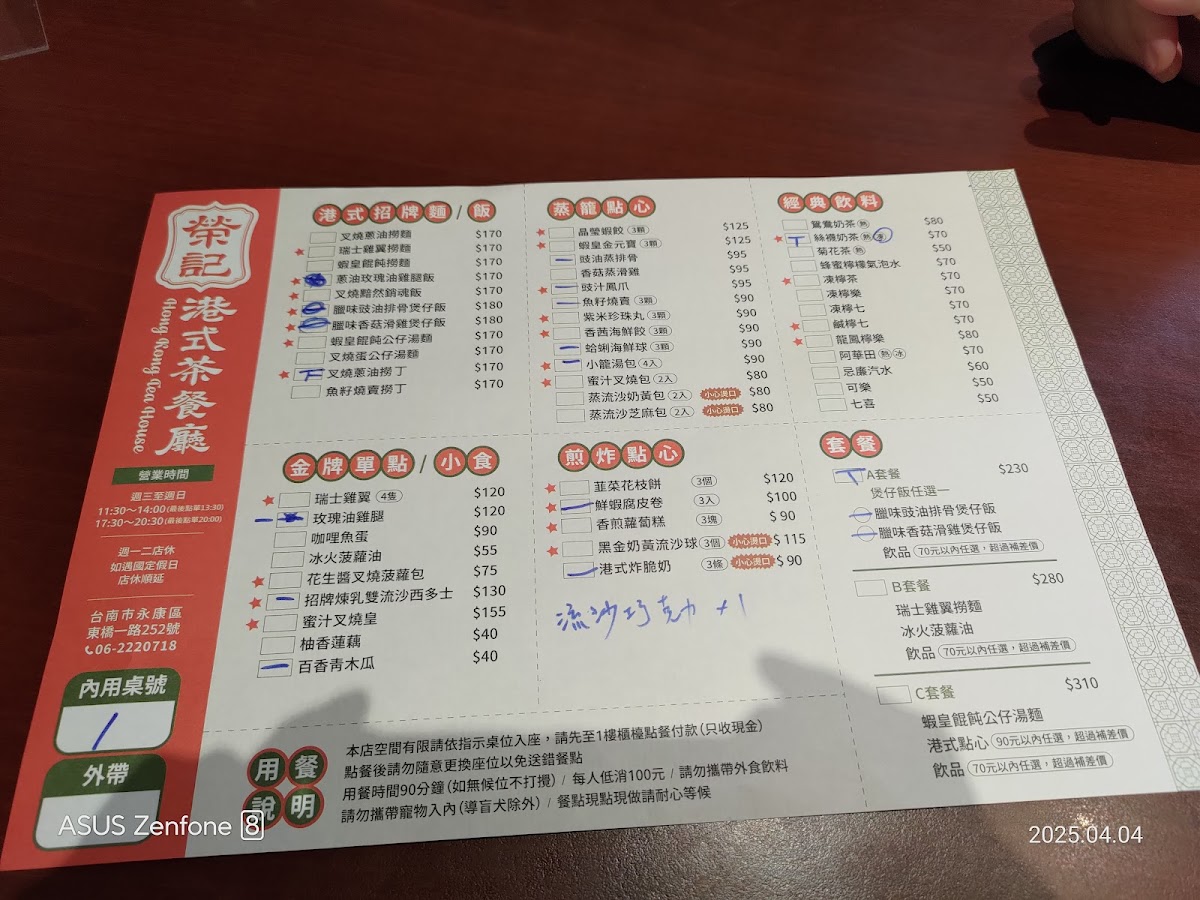 榮記
港式茶餐廳
Hong Kong Tea House
營業時間
週三至週日
11:30～14:00(最後點單13:30)
17:30～20:30(最後點單20:00)
週一二店休
如遇國定假日
店休順延
台南市永康區
東橋一路252號
06-2220718
內用桌號
1
外帶
港式招牌麵/飯
叉燒蔥油撈麵 $170
瑞士雞翼撈麵 $170
蝦皇餛飩撈麵 $170
蔥油玫瑰油雞腿飯 $170
叉燒黯然銷魂飯 $170
臘味豉油排骨煲仔飯 $180
臘味香菇滑雞煲仔飯 $180
蝦皇餛飩公仔湯麵 $170
叉燒蛋公仔湯麵 $170
叉燒蔥油撈丁 $170
魚籽燒賣撈丁 $170
蒸籠點心
晶瑩蝦餃 3顆 $125
蝦皇金元寶 3顆 $125
豉油蒸排骨 $95
香菇蒸滑雞 $95
豉汁鳳爪 $95
魚籽燒賣 3顆 $90
紫米珍珠丸 3顆 $90
香茜海鮮餃 3顆 $90
蛤蜊海鮮球 3顆 $90
小籠湯包 4入 $90
蜜汁叉燒包 2入 $80
蒸流沙奶黃包 2入 小心燙口 $80
蒸流沙芝麻包 2入 小心燙口 $80
經典飲料
鴛鴦奶茶 熱 $80
絲襪奶茶 熱 冰 $70
菊花茶 熱 $50
蜂蜜檸檬氣泡水 $70
凍檸茶 $70
凍檸樂 $70
凍檸七 $70
鹹檸七 $70
龍鳳檸樂 $80
阿華田 熱 冰 $70
忌廉汽水 $60
可樂 $50
七喜 $50
金牌單點/小食
瑞士雞翼 4隻 $120
玫瑰油雞腿 $120
咖哩魚蛋 $90
冰火菠蘿油 $55
花生醬叉燒菠蘿包 $75
招牌煉乳雙流沙西多士 $130
蜜汁叉燒皇 $155
柚香蓮藕 $40
百香青木瓜 $40
煎炸點心
韮菜花枝餅 3個 $120
鮮蝦腐皮卷 3入 $100
香煎蘿蔔糕 3塊 $90
黑金奶黃流沙球 3個 小心燙口 $115
港式炸脆奶 3條 小心燙口 $90
流沙巧克力 +1
套餐
A套餐 $230
煲仔飯任選一
臘味豉油排骨煲仔飯
臘味香菇滑雞煲仔飯
飲品 70元以內任選，超過補差價
B套餐 $280
瑞士雞翼撈麵
冰火菠蘿油
飲品 70元以內任選，超過補差價
C套餐 $310
蝦皇餛飩公仔湯麵
港式點心 90元以內任選，超過補差價
飲品 70元以內任選，超過補差價
用餐說明
本店空間有限請依指示桌位入座，請先至1樓櫃檯點餐付款(只收現金)
點餐後請勿隨意更換座位以免送錯餐點
用餐時間90分鐘(如無候位不打擾) / 每人低消100元 / 請勿攜帶外食飲料
請勿攜帶寵物入內(導盲犬除外) / 餐點現點現做請耐心等候
ASUS Zenfone 8
2025.04.04